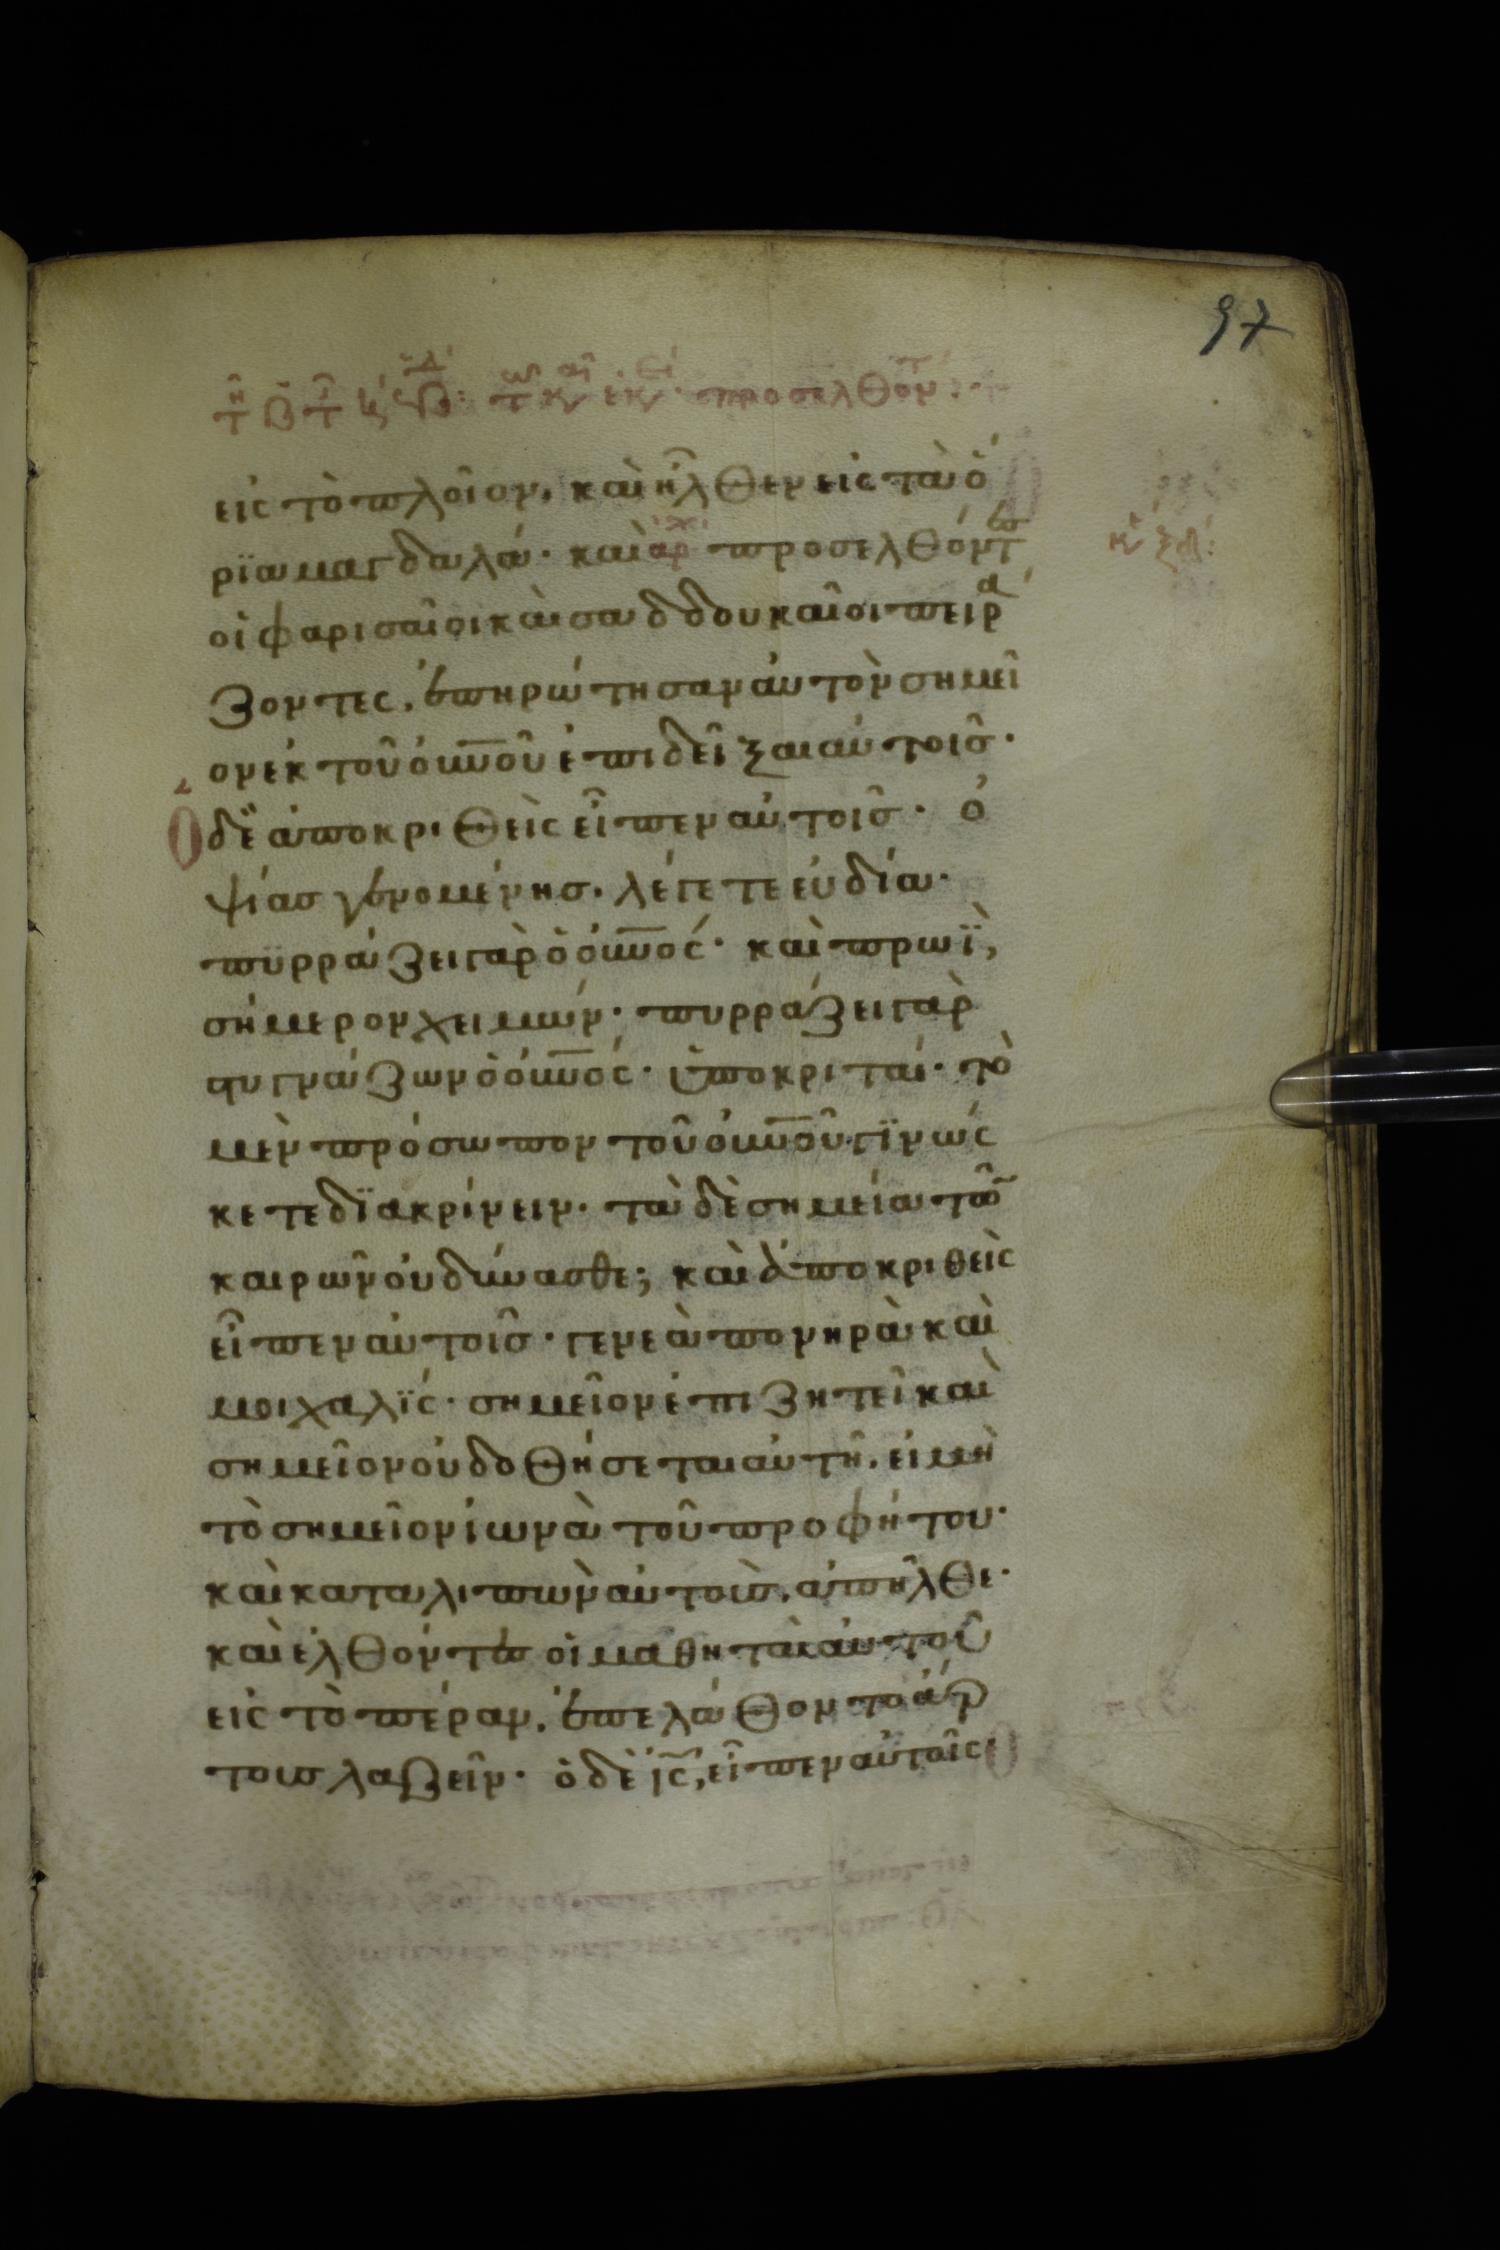 97
τῆ β τῆς ζ ἑβδ: τῷ και ἐκ. προσελθον:
εἰς τὸ πλοῖον, καὶ ἦλθεν εἰς τὰ ὅ
ρϊα μαγδαλά· καὶ αρχ προσελθόντες
οἱ φαρισαῖοι καὶ σαδδουκαῖοι πειρά
ζοντες, ἐπηρώτησαν αὐτὸν σημεῖ
ον ἐκ τοῦ οὐνοῦ ἐπιδεῖξαι αὐτοῖς·
Ὁ δὲ ἀποκριθεὶς εἶπεν αὐτοῖς· ὀ
ψίας γενομένης, λέγετε εὐδία·
πϋρράζει γὰρ ὁ οὐνος· καὶ πρωῒ,
σήμερον χειμών· πυρράζει γὰρ
στυγνάζων ὁ οὐνος· ὑποκριταί· τὸ
μὲν πρόσωπον τοῦ οὐνοῦ γϊνώς
κετε δϊακρίνειν· τὰ δὲ σημεία τῶν
καιρῶν οὐ δύνασθε; καὶ ἀποκριθεὶς
εἶπεν αὐτοῖς· γενεὰ πονηρὰ καὶ
μοιχαλϊς· σημεῖον ἐπιζητεῖ καὶ
σημεῖον οὐ δοθήσεται αὐτῆ, εἰ μὴ
τὸ σημεῖον ἰωνὰ τοῦ προφήτου·
καὶ καταλιπὼν αὐτοὺς, ἀπῆλθε·
καὶ ἐλθόντες οἱ μαθηταὶ αὐτοῦ
εἰς τὸ πέραν, ἐπελάθοντο ἄρ
τους λαβεῖν· ὁ δὲ ις, εἶπεν αὐτοῖς·